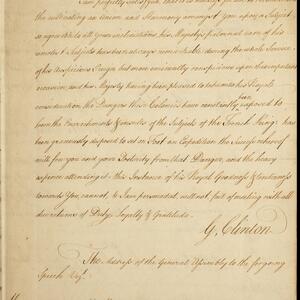 I am perfectly satisfied, that it is needless for me to recommend
the cultivating an Union and Harmony amongst you upon a Subject
so agreeable to all your inclinations, his Majesty's paternal care of his
Subjects has been always remarkable during the whole Course
of his Auspicious Reign but more eminently conspicuous upon the
occasion, and his Majesty having been pleased to take into his Royal
consideration the Dangers these Colonies have constantly been exposed to
from the Encroachments & of the Subjects of the French King has
been generously disposed to set on Foot an Expedition the Success whereof
will free you and your Posterity from that Danger, and the heavy
expence attending it; this Instance of his Royal Goodness & tenderness
towards You cannot, to I am perswaded, will not fail of meeting with all
due returns of Duty, Loyalty & Gratitude.
G. Clinton
The Address of the General Assembly to the foregoing
Speech